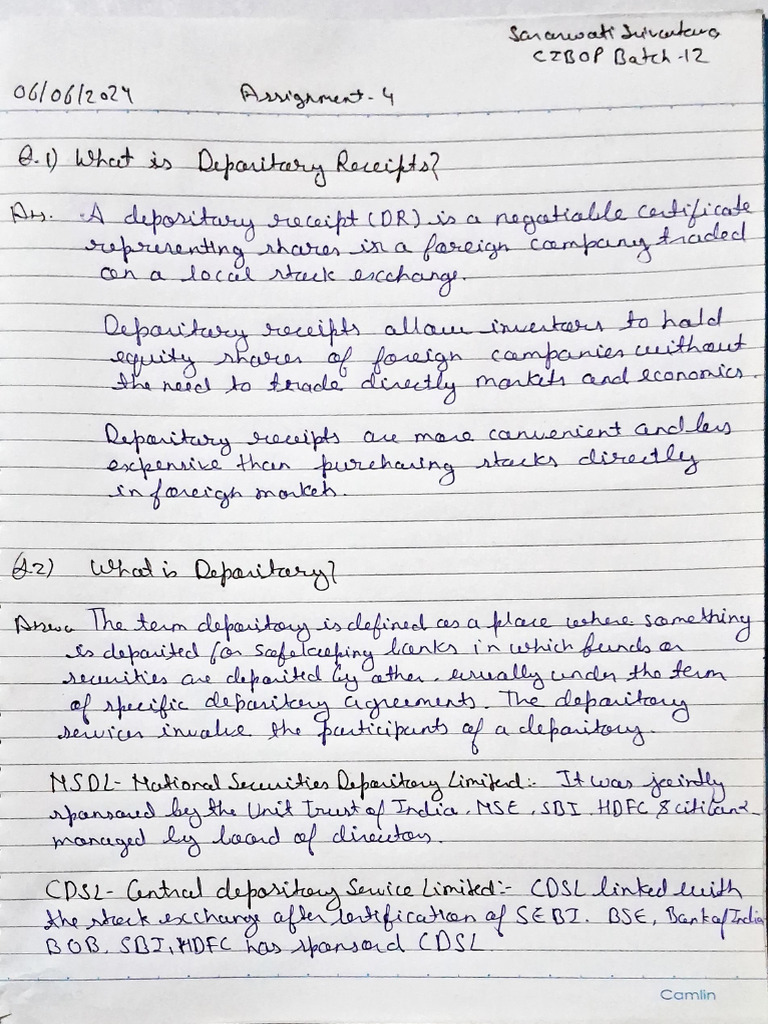 Saraswati Srivastava
CIBOP Batch-12
06/06/2024 Assignment-4
Q.1) What is Depositary Receipts?
Ans. A depositary receipt (DR) is a negotiable certificate
representing shares in a foreign company traded
on a local stock exchange.
Depositary receipts allow investors to hold
equity shares of foreign companies without
the need to trade directly markets and economics.
Depositary receipts are more convenient and less
expensive than purchasing stocks directly
in foreign markets.
Q.2) What is Depositary?
The term depository is defined as a place where something
is deposited for safekeeping banks in which funds or
securities are deposited by other. usually under the term
of specific depository agreements. The depository
services involve the participants of a depository.
NSDL- National Securities Depository Limited:- It was jointly
sponsored by the Unit Trust of India, NSE, SBI, HDFC &
managed by board of directors.
CDSL- Central depository Service Limited:- CDSL linked with
the stock exchange after certification of SEBI. BSE, Bank of India
BOB, SBI, HDFC has sponsord CDSL.
Camlin